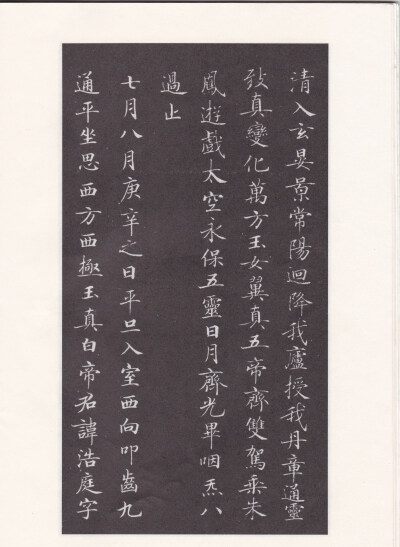 清入玄晏景常陽迴降我廬授我丹章通靈
致真變化萬方玉女翼真五帝齊雙駕乘朱
鳳遊戲太空永保五靈日月齊光畢咽炁八
過止
七月八月庚辛之日平旦入室西向叩齒九
通平坐思西方西極玉真白帝君諱浩庭字